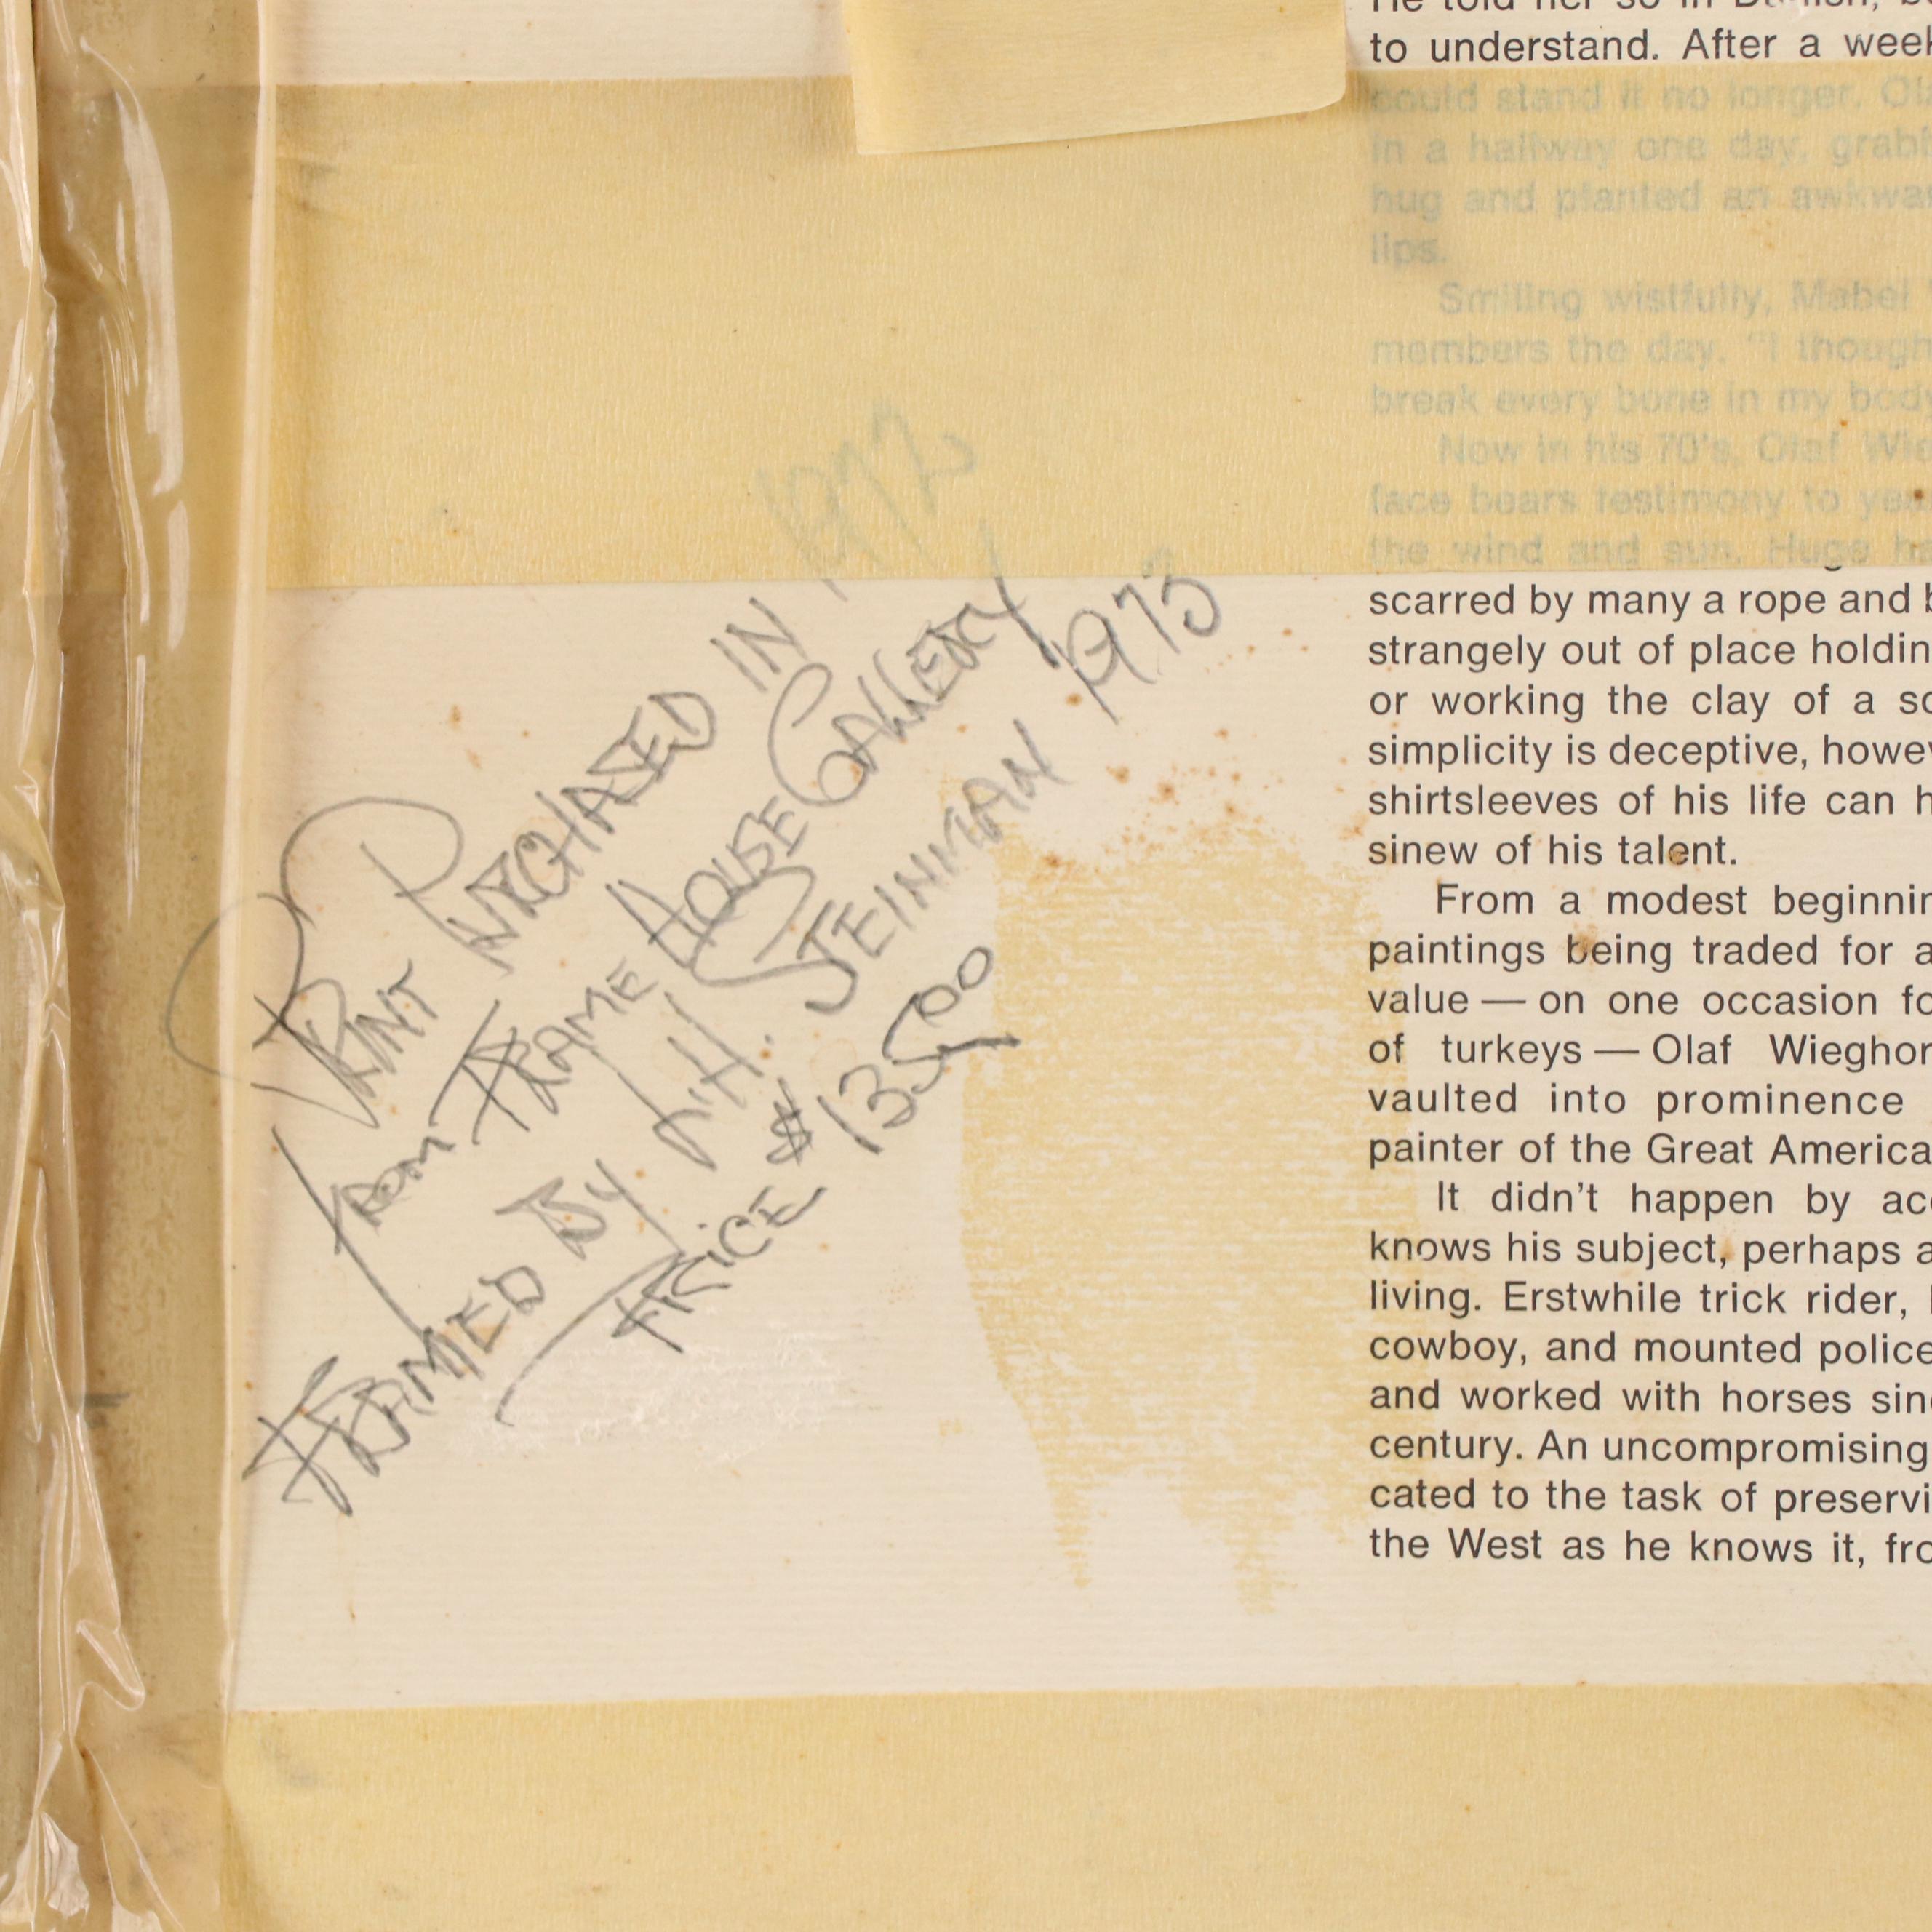 PRINT PURCHASED IN 1972
FROM FRAME HOUSE GALLERY
FRAMED By J.H. STEINMAN 1973
PRICE $13500
to understand. After a week
could stand it no longer. Ola
in a hallway one day, grabb
hug and planted an awkwar
lips.
Smiling wistfully, Mabel
members the day. "I though
break every bone in my body
Now in his 70's, Olaf Wie
face bears testimony to yea
the wind and sun. Huge ha
scarred by many a rope and b
strangely out of place holdin
or working the clay of a sc
simplicity is deceptive, howev
shirtsleeves of his life can h
sinew of his talent.
From a modest beginnin
paintings being traded for a
value — on one occasion fo
of turkeys — Olaf Wieghor
vaulted into prominence
painter of the Great America
It didn't happen by acc
knows his subject, perhaps a
living. Erstwhile trick rider,
cowboy, and mounted police
and worked with horses sinc
century. An uncompromising
cated to the task of preservi
the West as he knows it, fro